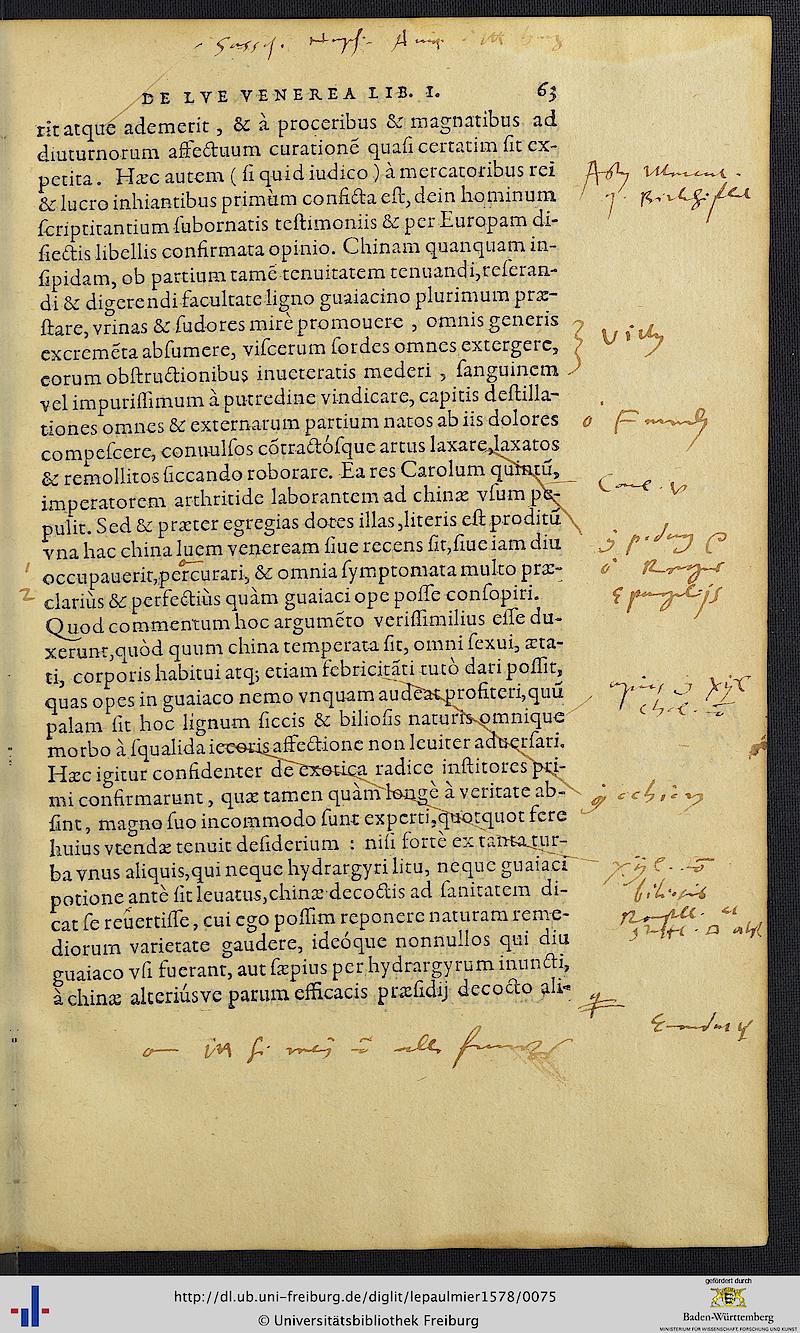 DE LVE VENEREA LIB. I. 63
rit atque ademerit, & à proceribus & magnatibus ad
diuturnorum affectuum curationẽ quasi certatim sit ex-
petita. Hæc autem ( si quid iudico ) à mercatoribus rei
& lucro inhiantibus primùm conficta est, dein hominum
scriptitantium subornatis testimoniis & per Europam di-
siectis libellis confirmata opinio. Chinam quanquam in-
sipidam, ob partium tamẽ tenuitatem tenuandi, referan-
di & digerendi facultate ligno guaiacino plurimum præ-
stare, vrinas & sudores mirè promouere, omnis generis
excremẽta absumere, viscerum sordes omnes extergere,
eorum obstructionibus inueteratis mederi, sanguinem
vel impurissimum à putredine vindicare, capitis destilla-
tiones omnes & externarum partium natos ab iis dolores
compescere, conuulsos cõtractósque artus laxare, laxatos
& remollitos siccando roborare. Ea res Carolum quintũ,
imperatorem arthritide laborantem ad chinæ vsum pe-
pulit. Sed & præter egregias dotes illas, literis est proditũ
vna hac china luem veneream siue recens sit, siue iam diu
occupauerit, percurari, & omnia symptomata multo præ-
clariùs & perfectiùs quàm guaiaci ope posse consopiri.
Quod commentum hoc argumẽto verissimilius esse du-
xerunt, quòd quum china temperata sit, omni sexui, æta-
ti, corporis habitui atq; etiam febricitãti tutò dari possit,
quas opes in guaiaco nemo vnquam audeat profiteri, quũ
palam sit hoc lignum siccis & biliosis naturis omnique
morbo à squalida iecoris affectione non leuiter aduersari.
Hæc igitur confidenter de exotica radice institores pri-
mi confirmarunt, quæ tamen quàm longè à veritate ab-
sint, magno suo incommodo sunt experti, quotquot fere
huius vtendæ tenuit desiderium : nisi fortè ex tanta tur-
ba vnus aliquis, qui neque hydrargyri litu, neque guaiaci
potione antè sit leuatus, chinæ decoctis ad sanitatem di-
cat se reuertisse, cui ego possim reponere naturam reme-
diorum varietate gaudere, ideóque nonnullos qui diu
guaiaco vsi fuerant, aut sæpius per hydrargyrum inuncti,
à chinæ alteriúsve parum efficacis præsidij decocto ali-
http://dl.ub.uni-freiburg.de/diglit/lepaulmier1578/0075
© Universitätsbibliothek Freiburg
gefördert durch
Baden-Württemberg
MINISTERIUM FÜR WISSENSCHAFT, FORSCHUNG UND KUNST